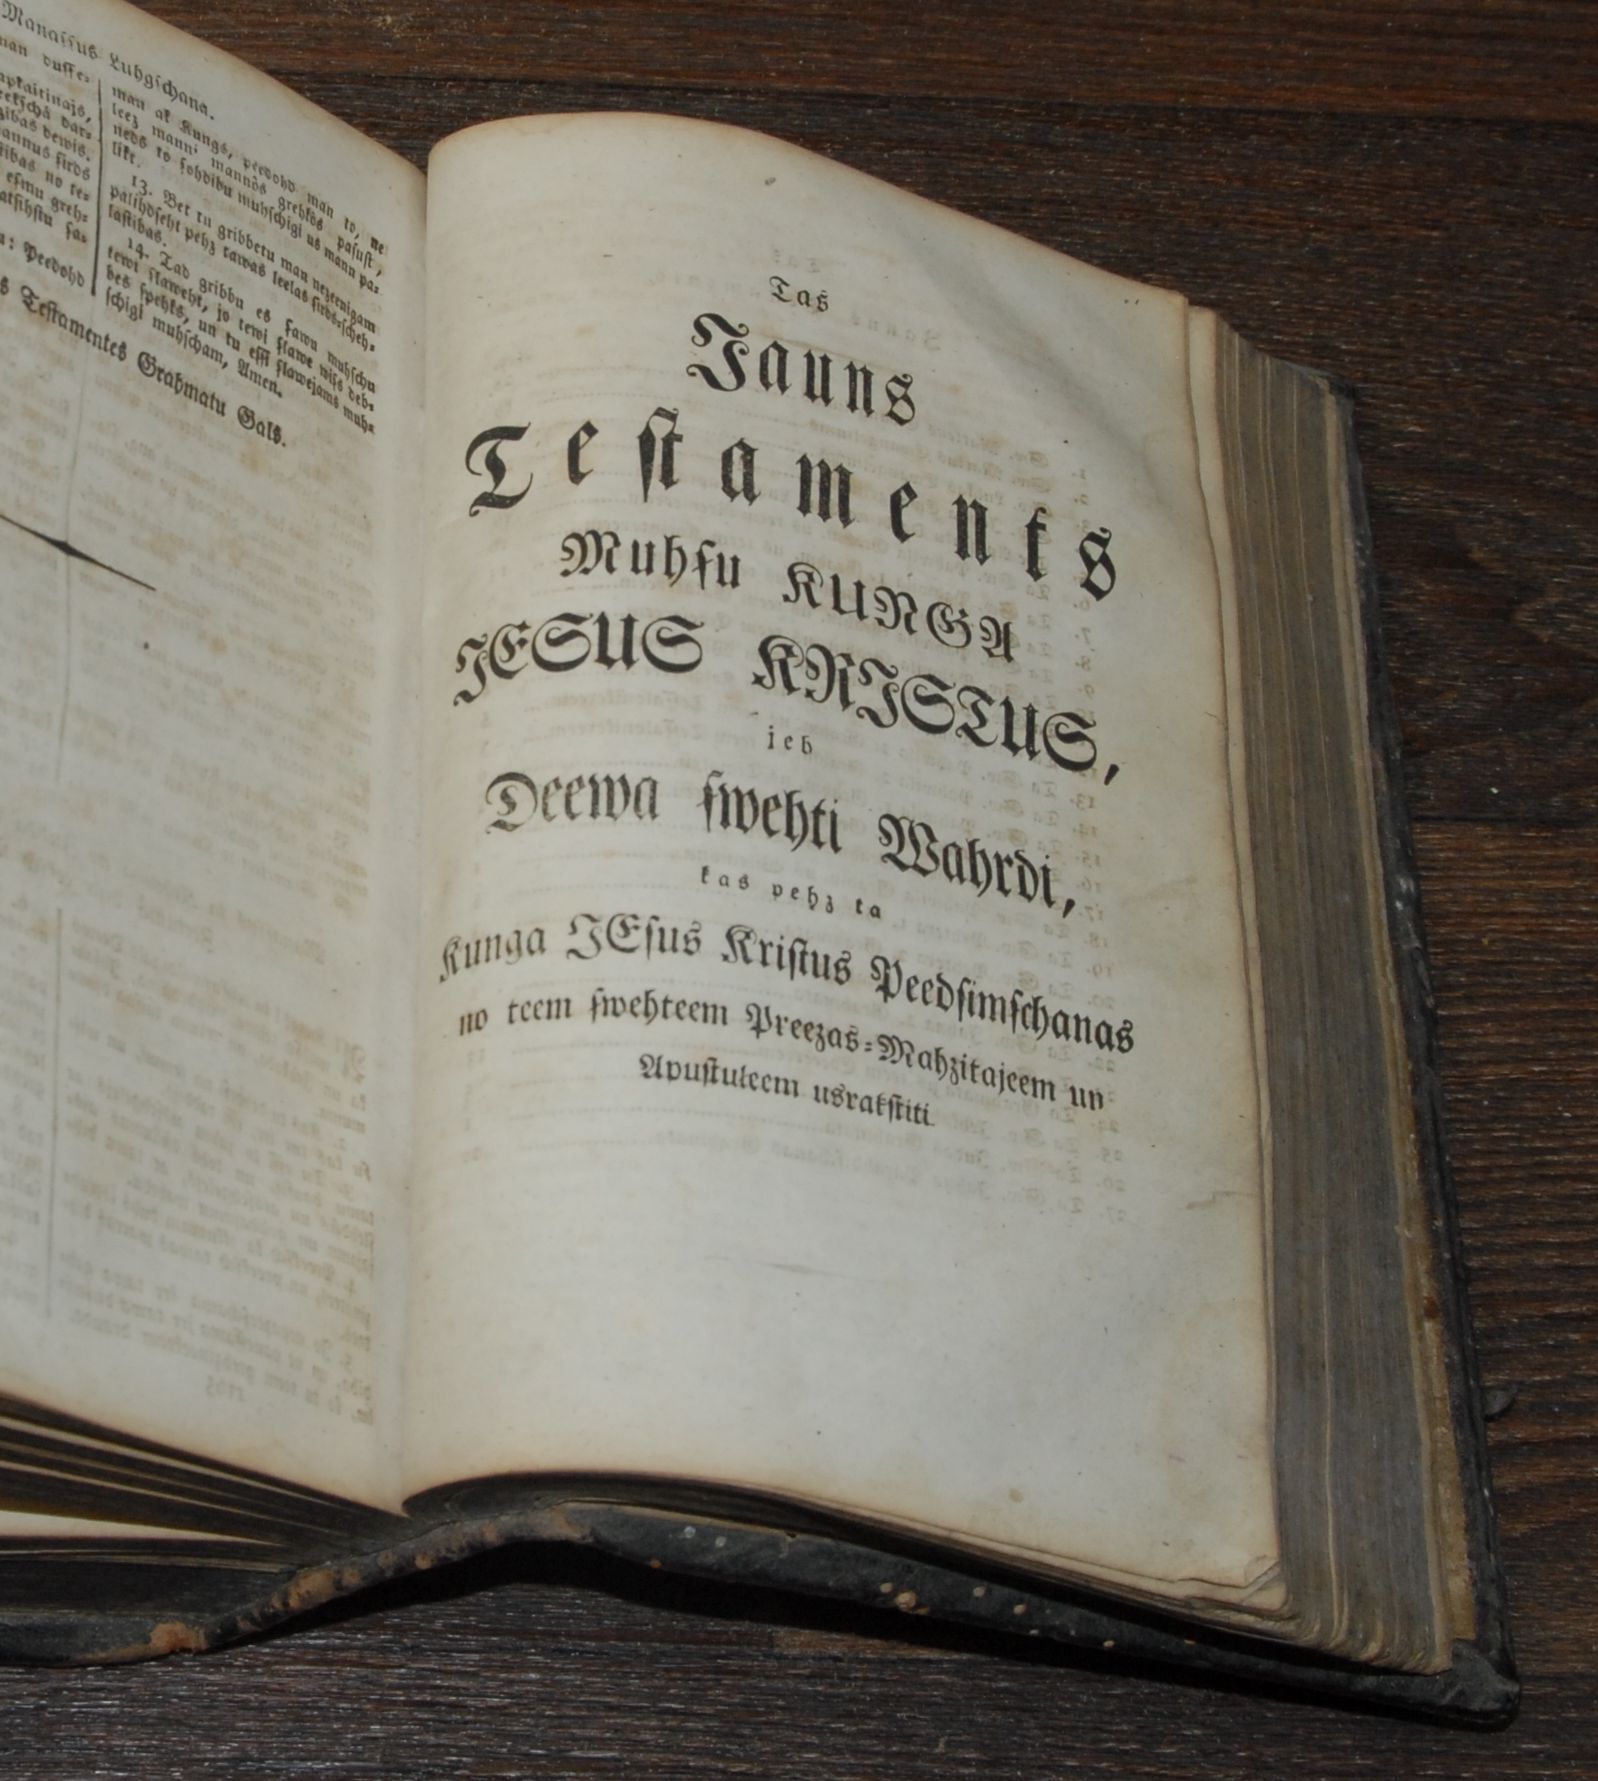 Manassus Luhgschana.
man duffe-
apkaitinajs,
dewis.
sirds
no te-
esmu greh-
atsihstu sa-
Peedohd
man ak Kungs, peedohd man to, ne
leez manni mannôs grehkôs pasust,
neds to sohdibu muhschigi us mann pa-
likt.
13. Bet tu gribbetu man nezeenigam
palihdseht pehz tawas leelas sirds-scheh-
lastibas.
14. Tad gribbu es sawu muhschu
tewi slaweht, jo tewi slawe wiss deb-
bes spehks, un tu essi slawejams muh-
schigi muhscham, Amen.
s Testamentes Grahmatu Gals.
Tas
Jauns
Testaments
Muhsu KUNGA
JESUS KRISTUS,
jeb
Deewa swehti Wahrdi,
kas pehz ta
Kunga JEsus Kristus Peedsimschanas
no teem swehteem Preezas-Mahzitajeem un
Apustuleem usrakstiti